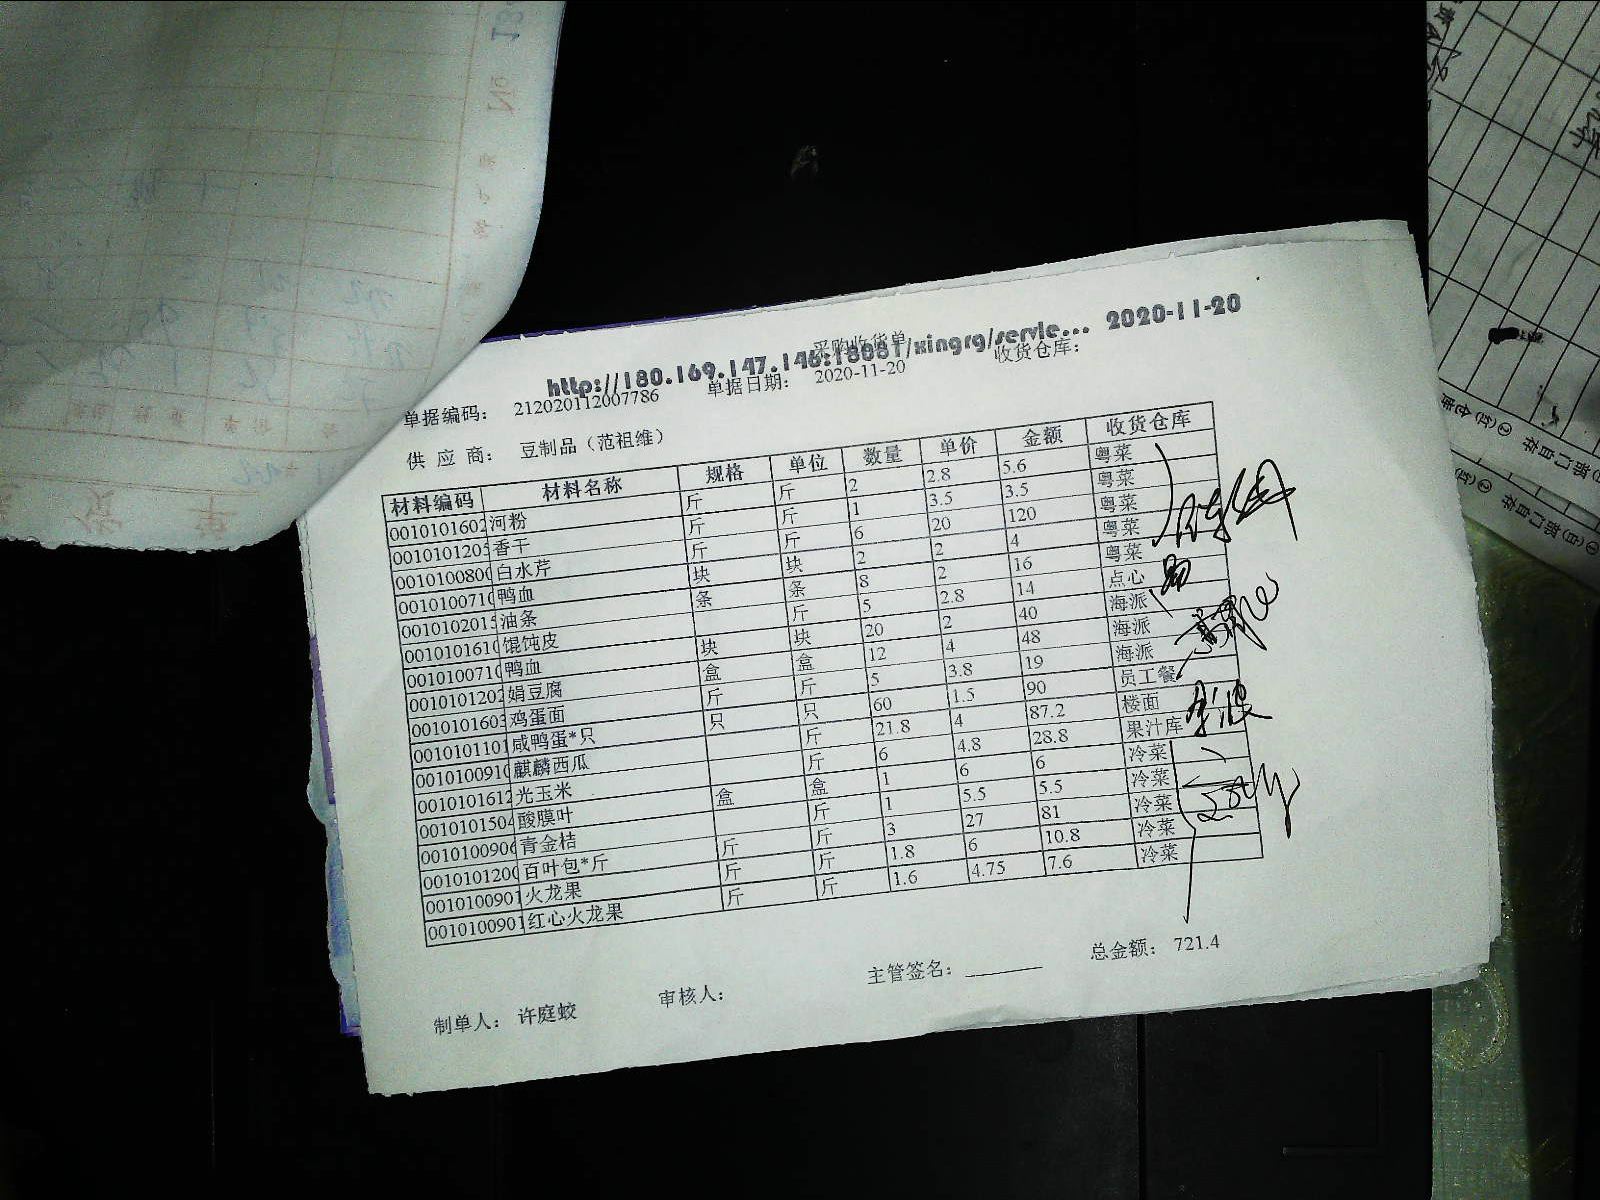 http://180.169.147.146:18081/xingrg/servle... 2020-11-20
采购收货单
单据编码： 212020112007786 单据日期： 2020-11-20 收货仓库：
供 应 商： 豆制品（范祖维）
材料编码 材料名称 规格 单位 数量 单价 金额 收货仓库
0010101602 河粉 斤 斤 2 2.8 5.6 粤菜
0010101205 香干 斤 斤 1 3.5 3.5 粤菜
0010100800 白水芹 斤 斤 6 20 120 粤菜
0010100710 鸭血 块 块 2 2 4 粤菜
0010102015 油条 条 条 8 2 16 粤菜
0010101610 馄饨皮 斤 5 2.8 14 点心
0010100710 鸭血 块 块 20 2 40 海派
0010101202 娟豆腐 盒 盒 12 4 48 海派
0010101603 鸡蛋面 斤 斤 5 3.8 19 海派
0010101101 咸鸭蛋*只 只 只 60 1.5 90 员工餐
0010100910 麒麟西瓜 斤 21.8 4 87.2 楼面
0010101612 光玉米 斤 6 4.8 28.8 果汁库
0010101504 酸膜叶 盒 盒 1 6 6 冷菜
0010100906 青金桔 斤 1 5.5 5.5 冷菜
0010101200 百叶包*斤 斤 斤 3 27 81 冷菜
0010100901 火龙果 斤 斤 1.8 6 10.8 冷菜
0010100901 红心火龙果 斤 斤 1.6 4.75 7.6 冷菜
制单人： 许庭蛟 审核人： 主管签名： 总金额： 721.4